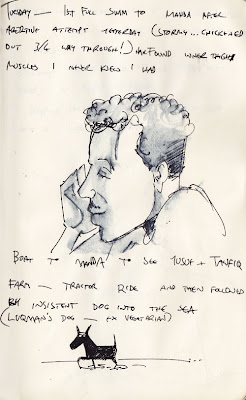 TUESDAY — 1ST FULL SWIM TO MANDA AFTER
ABORTIVE ATTEMPT YESTERDAY (STORMY... CHICKENED
OUT 3/4 WAY THROUGH!) HAVE FOUND UNDER
MUSCLES I NEVER KNEW I HAD
BOAT TO MANDA TO SEE YUSUF + TANFIQ
FARM — TRACTOR RIDE AND THEN FOLLOWED
BY INSISTENT DOG INTO THE SEA
(LUQMAN'S DOG — EX VEGETARIAN)